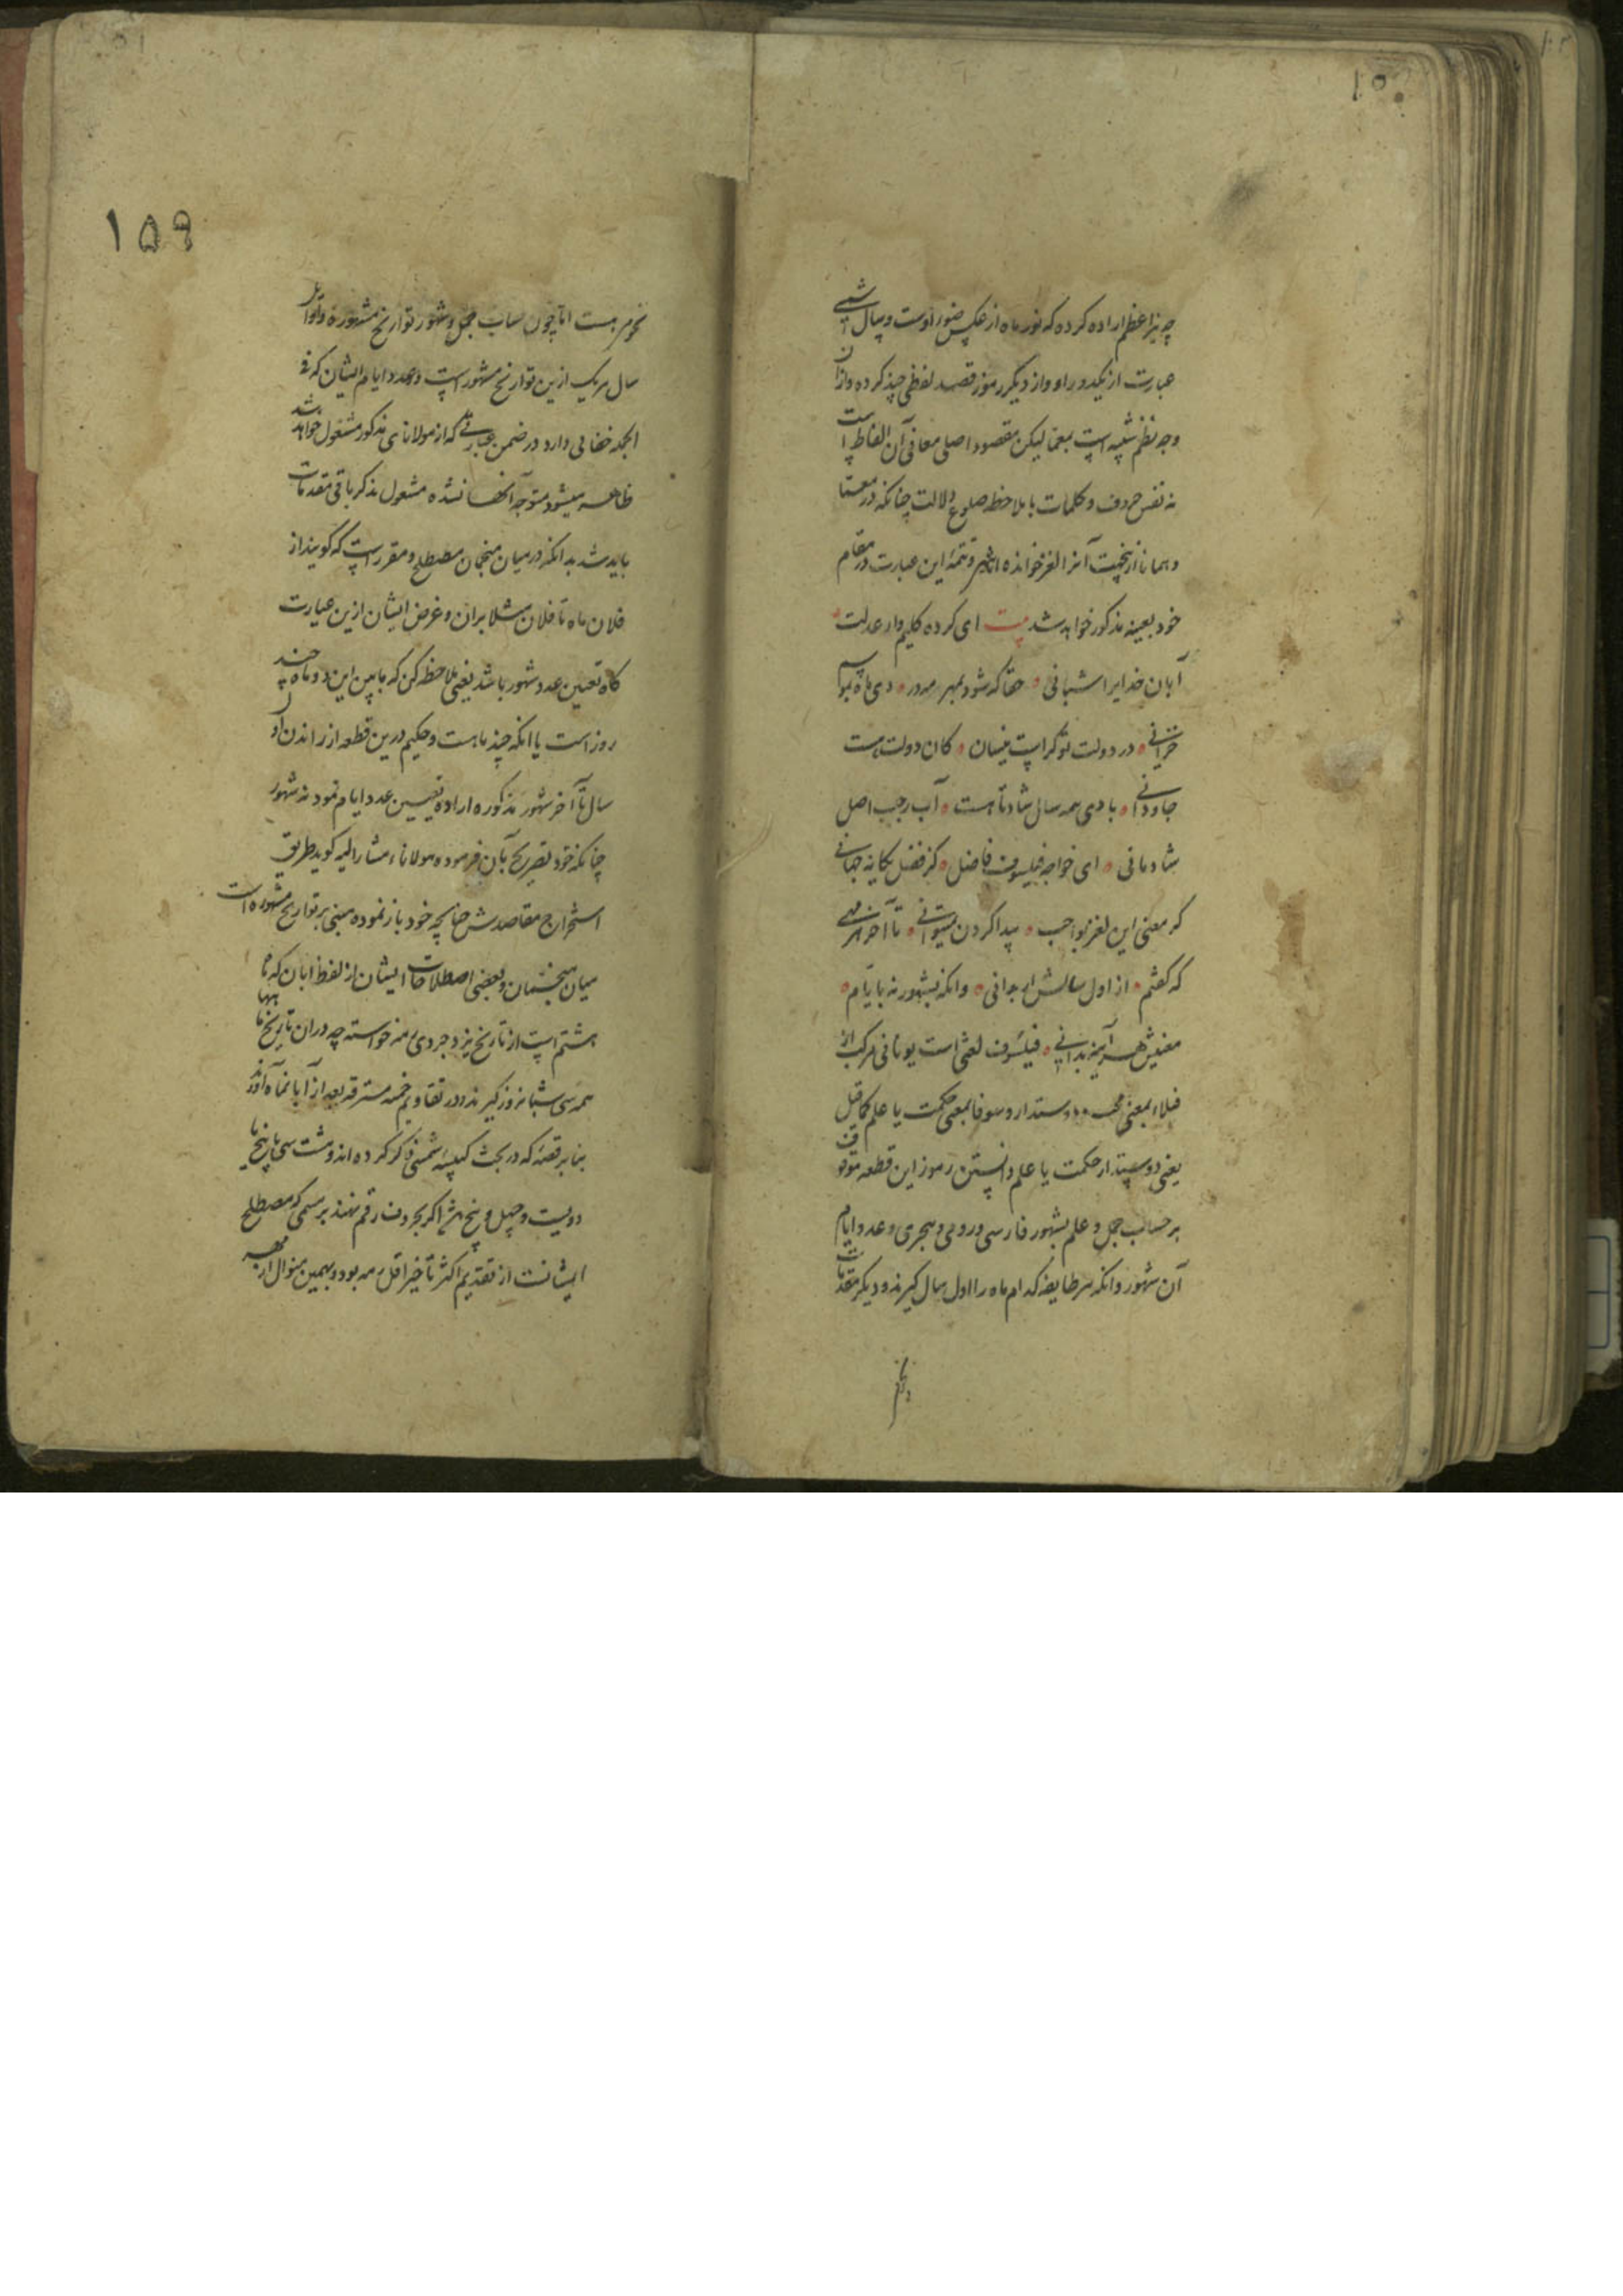 ۱۵۰
چه نیر اعظم اراده کرده که نور ماه از عکس ضوء اوست و سال شبی
عبارت از یکدور او و از دیگر رموز قصد لفظی چند کرده و از آن
وجه نظم شبیه است بمعما لیکن مقصود اصلی معانی آن الفاظ است
نه نفس حروف و کلمات با ملاحظه دلالت چنانکه در معما
و همانا ازینجهت آنرا لغز خوانده اند و تتمه این عبارت در مقام
خود بعینه مذکور خواهد شد بیت ای کرده کلیم وار عدلت
آبان خدایرا شبانی حقا که شود بمهر دی ماه
خزانی در دولت تو کراست نیسان کان دولت هست
جاودانی بادی همه سال شاد تا هست آب رجب اصل
شادمانی ای خواجه فیلسوف فاضل کز فضل یگانه جهانی
کر معنی این لغز بواجب پیدا کردن میتوانی تا آخر هر مهی
که گفتم از اول سالش ار بدانی وانکه بشهور نه بایام
معنیش هر آینه بدانی فیلسوف لغتی است یونانی مرکب از
فیلا بمعنی محب و دوستدار و سوفا بمعنی حکمت یا علم کما قیل
یعنی دوستدار حکمت یا علم و دانستن رموز این قطعه موقوف
بر حساب جمل و علم بشهور فارسی و رومی و هجری و عدد ایام
آن شهور وانکه هر طایفه کدام ماه را اول سال گیرند و دیگر مقدمات
۱۵۹
نجوم هست اما چون حساب جمل و شهور تواریخ مشهوره و اوایل
سال هر یک ازین تواریخ مشهور است و عدد ایام ایشان که فی
الجمله خفائی دارد در ضمن عبارتی که از مولانای مذکور منقول خواهد شد
ظاهر میشود متوجه آنها نشده مشغول بذکر باقی مقدمات
باید شد بدانکه در میان منجمان مصطلح و مقرر است که گویند از
فلان ماه تا فلان مثلا بران و غرض ایشان ازین عبارت
گاه تعیین عدد شهور باشد یعنی ملاحظه کن که مابین این دو ماه چند
روز است یا آنکه چند ماهست و حکیم درین قطعه از راندن از اول
سال تا آخر شهور مذکوره اراده تعیین عدد ایام نمود نه شهور
چنانکه خود تصریح بآن فرموده مولاناء مشار الیه گوید طریق
استخراج مقاصدش چنانچه خود باز نموده مبنی بر تواریخ مشهوره است
میان منجمان و بعضی اصطلاحات ایشان از لفظ ابان که ماه
هشتم است از تاریخ یزدجردی خواسته چه در ان تاریخ ماهها
همه سی شبانروز گیرند و در تقاویم خمسه مسترقه بعد از آبانماه آورند
بنا بر قصه که در بحث کبیسه شمسی ذکر کرده اند و هشت سی با پنج
دویست و چهل و پنج اگر بحروف رقم نهند بر رسمی که مصطلح
ایشانست از تقدیم اکثر تاخیر اقل رمه بود و بهمین منوال از